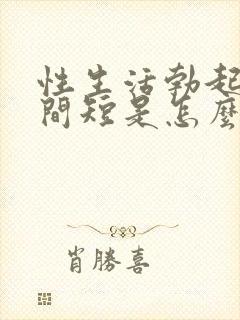 性生活勃起
間短是怎麼
肖勝喜